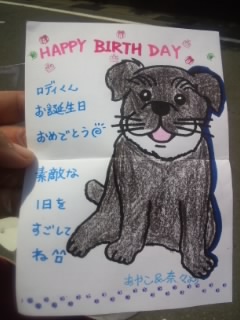 HAPPY BIRTH DAY
ロディくん
お誕生日
おめでとう
素敵な
1日を
すごして
ね
あやこ&奈